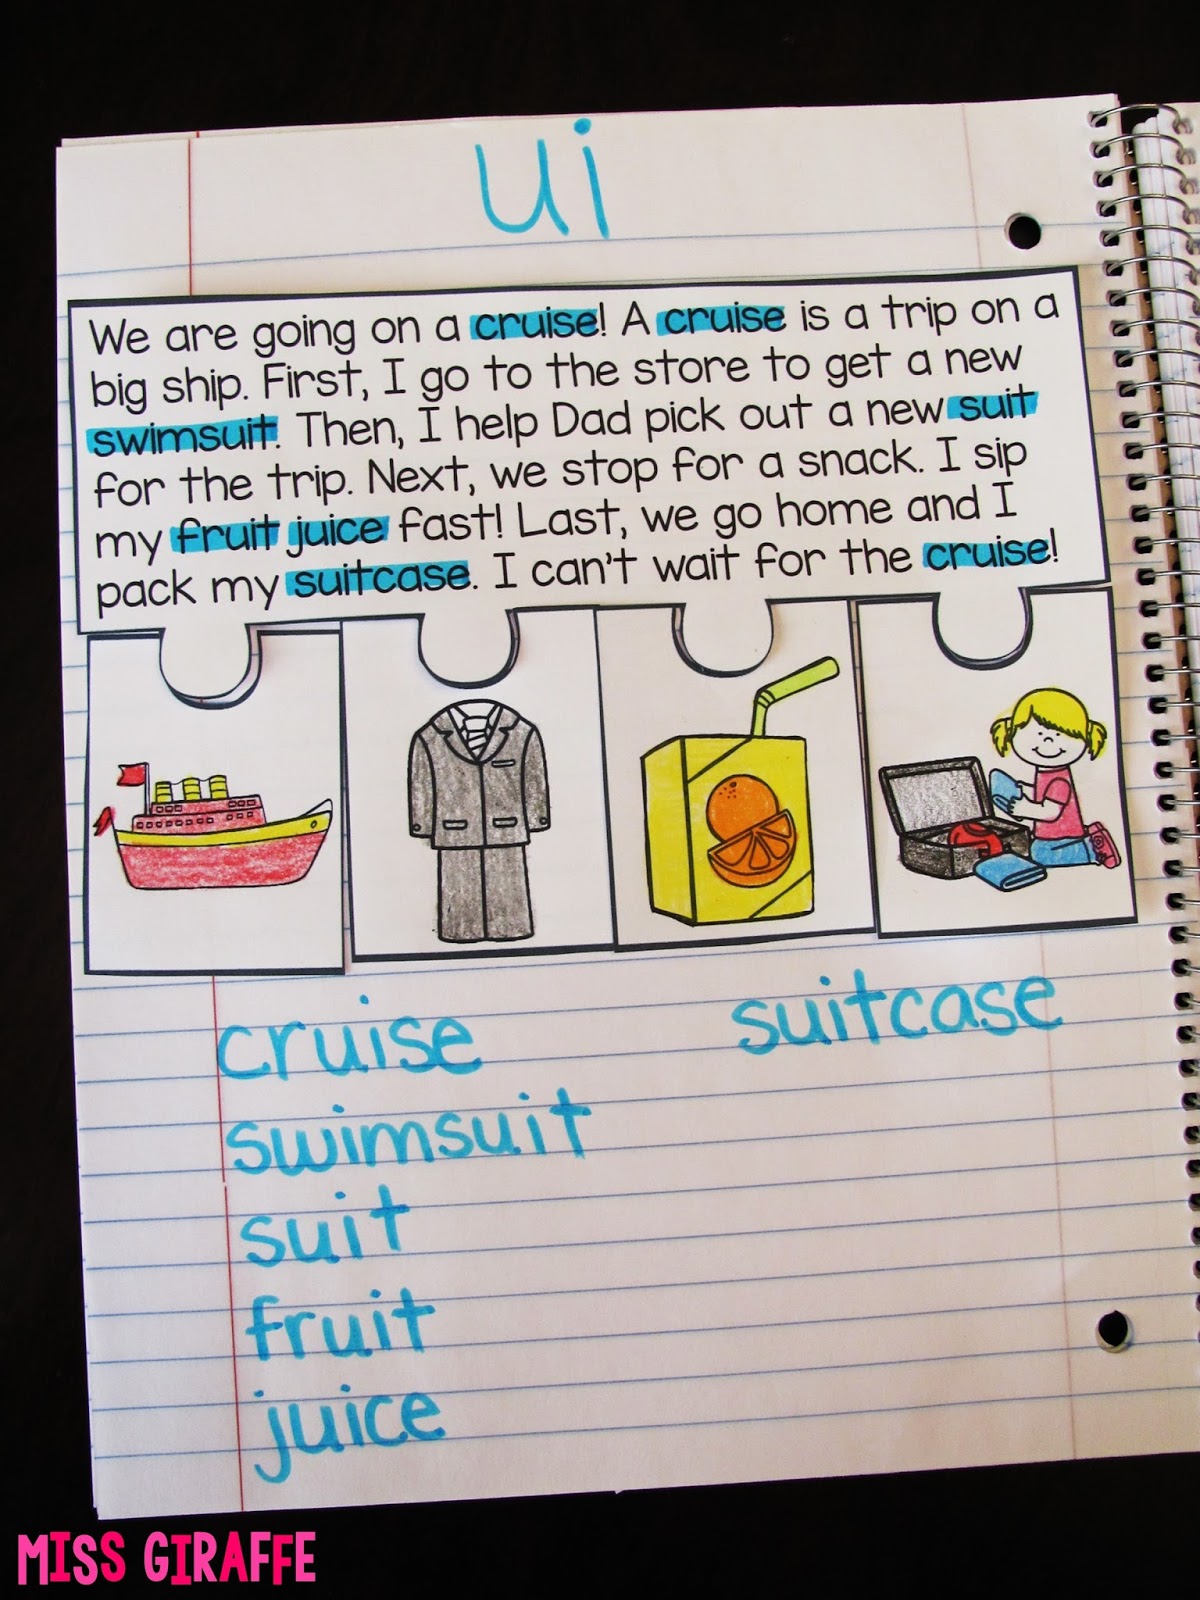 ui
We are going on a cruise! A cruise is a trip on a
big ship. First, I go to the store to get a new
swimsuit. Then, I help Dad pick out a new suit
for the trip. Next, we stop for a snack. I sip
my fruit juice fast! Last, we go home and I
pack my suitcase. I can't wait for the cruise!
cruise
swimsuit
suit
fruit
juice
suitcase
MISS GIRAFFE